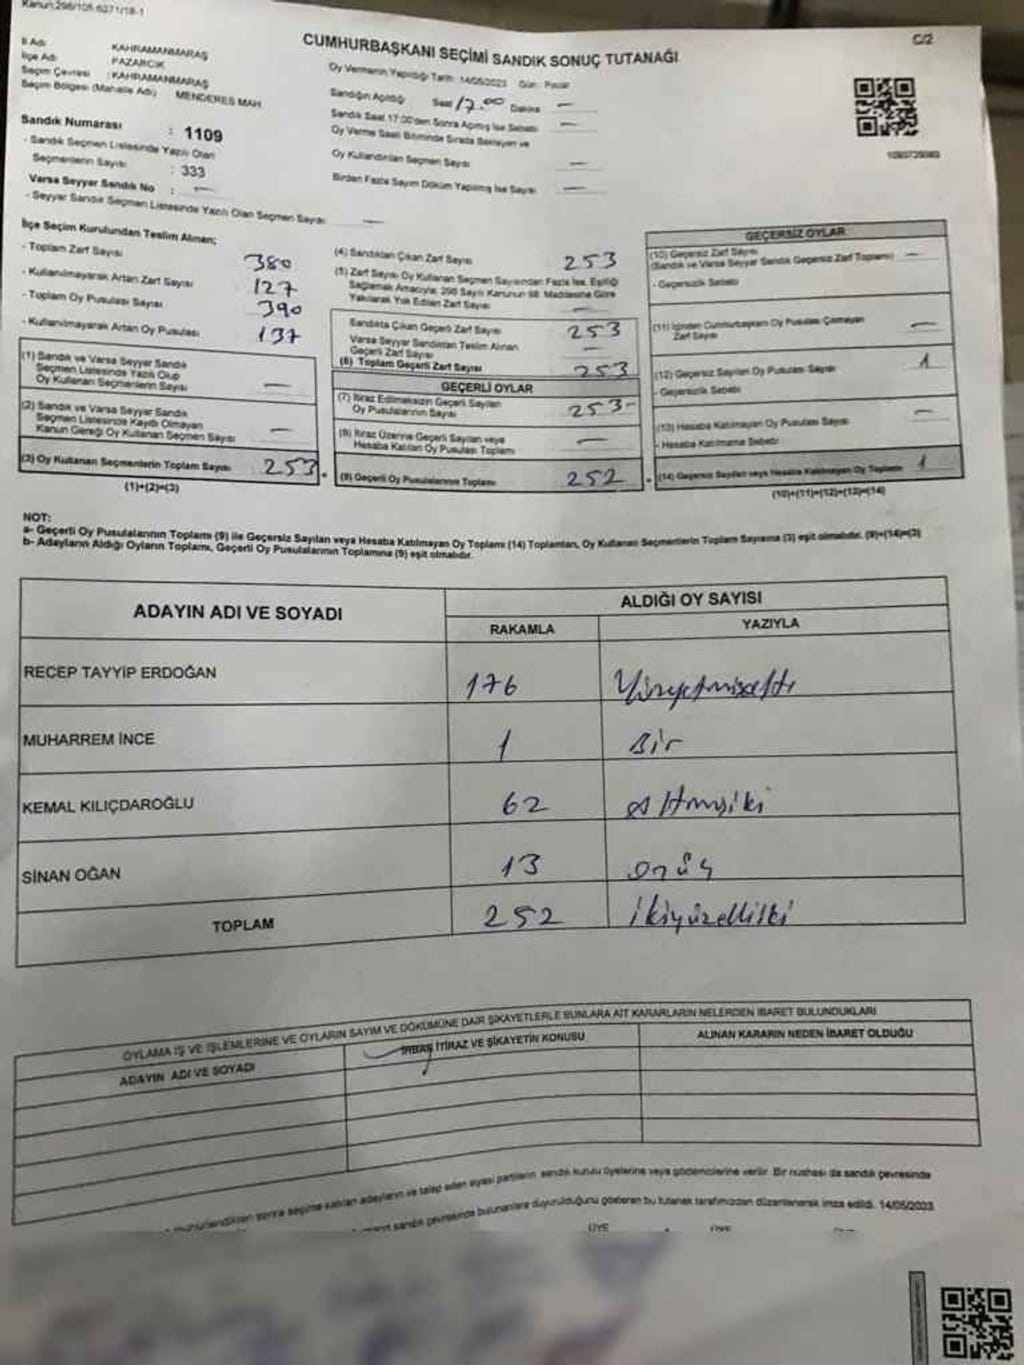 Kanun:298/105 6271/18-1
C/2
CUMHURBAŞKANI SEÇİMİ SANDIK SONUÇ TUTANAĞI
İl Adı KAHRAMANMARAŞ
İlçe Adı PAZARCIK
Seçim Çevresi : KAHRAMANMARAŞ
Seçim Bölgesi (Mahalle Adı) MENDERES MAH.
Oy Vermenin Yapıldığı Tarih: 14/05/2023 Gün: Pazar
Sandığın Açıldığı Saat 17.00 Dakika —
Sandık Saat 17:00'den Sonra Açılmış İse Sebebi —
Oy Verme Saati Bitiminde Sırada Bekleyen ve
Oy Kullandırılan Seçmen Sayısı —
Birden Fazla Sayım Döküm Yapılmış İse Sayısı —
Sandık Numarası : 1109
- Sandık Seçmen Listesinde Yazılı Olan
Seçmenlerin Sayısı : 333
Varsa Seyyar Sandık No : —
- Seyyar Sandık Seçmen Listesinde Yazılı Olan Seçmen Sayısı —
İlçe Seçim Kurulundan Teslim Alınan;
- Toplam Zarf Sayısı 380
- Kullanılmayarak Artan Zarf Sayısı 127
- Toplam Oy Pusulası Sayısı 390
- Kullanılmayarak Artan Oy Pusulası 137
(1) Sandık ve Varsa Seyyar Sandık
Seçmen Listesinde Yazılı Olup
Oy Kullanan Seçmenlerin Sayısı —
(2) Sandık ve Varsa Seyyar Sandık
Seçmen Listesinde Kaydı Olmayan
Kanun Gereği Oy Kullanan Seçmen Sayısı —
(3) Oy Kullanan Seçmenlerin Toplam Sayısı 253
(1)+(2)=(3)
(4) Sandıktan Çıkan Zarf Sayısı 253
(5) Zarf Sayısı Oy Kullanan Seçmen Sayısından Fazla İse, Eşitliği
Sağlamak Amacıyla; 298 Sayılı Kanunun 98. Maddesine Göre
Yakılarak Yok Edilen Zarf Sayısı —
Sandıkta Çıkan Geçerli Zarf Sayısı 253
Varsa Seyyar Sandıktan Teslim Alınan
Geçerli Zarf Sayısı —
(6) Toplam Geçerli Zarf Sayısı 253
GEÇERLİ OYLAR
(7) İtiraz Edilmeksizin Geçerli Sayılan
Oy Pusulalarının Sayısı 253-
(8) İtiraz Üzerine Geçerli Sayılan veya
Hesaba Katılan Oy Pusulası Toplamı —
(9) Geçerli Oy Pusulalarının Toplamı 252
GEÇERSİZ OYLAR
(10) Geçersiz Zarf Sayısı
(Sandık ve Varsa Seyyar Sandık Geçersiz Zarf Toplamı) —
- Geçersizlik Sebebi
(11) İçinden Cumhurbaşkanı Oy Pusulası Çıkmayan
Zarf Sayısı —
(12) Geçersiz Sayılan Oy Pusulası Sayısı 1
- Geçersizlik Sebebi
(13) Hesaba Katılmayan Oy Pusulası Sayısı —
- Hesaba Katılmama Sebebi
(14) Geçersiz Sayılan veya Hesaba Katılmayan Oy Toplamı 1
(10)+(11)+(12)+(13)=(14)
NOT:
a- Geçerli Oy Pusulalarının Toplamı (9) ile Geçersiz Sayılan veya Hesaba Katılmayan Oy Toplamı (14) Toplamları, Oy Kullanan Seçmenlerin Toplam Sayısına (3) eşit olmalıdır. (9)+(14)=(3)
b- Adayların Aldığı Oyların Toplamı, Geçerli Oy Pusulalarının Toplamına (9) eşit olmalıdır.
ADAYIN ADI VE SOYADI
ALDIĞI OY SAYISI
RAKAMLA YAZIYLA
RECEP TAYYİP ERDOĞAN 176 Yüzyetmişaltı
MUHARREM İNCE 1 Bir
KEMAL KILIÇDAROĞLU 62 Altmışiki
SİNAN OĞAN 13 onüç
TOPLAM 252 ikiyüzelliiki
OYLAMA İŞ VE İŞLEMLERİNE VE OYLARIN SAYIM VE DÖKÜMÜNE DAİR ŞİKAYETLERLE BUNLARA AİT KARARLARIN NELERDEN İBARET BULUNDUKLARI
ADAYIN ADI VE SOYADI
İTİRAZ VE ŞİKAYETİN KONUSU
ALINAN KARARIN NEDEN İBARET OLDUĞU
mühürlendikten sonra seçime katılan adayların ve talep eden siyasi partilerin sandık kurulu üyelerine veya gözlemcilerine verilir. Bir nüshası da sandık çevresinde
sandık çevresinde bulunanlara duyurulduğunu gösteren bu tutanak tarafımızdan düzenlenerek imza edildi. 14/05/2023
ÜYE ÜYE